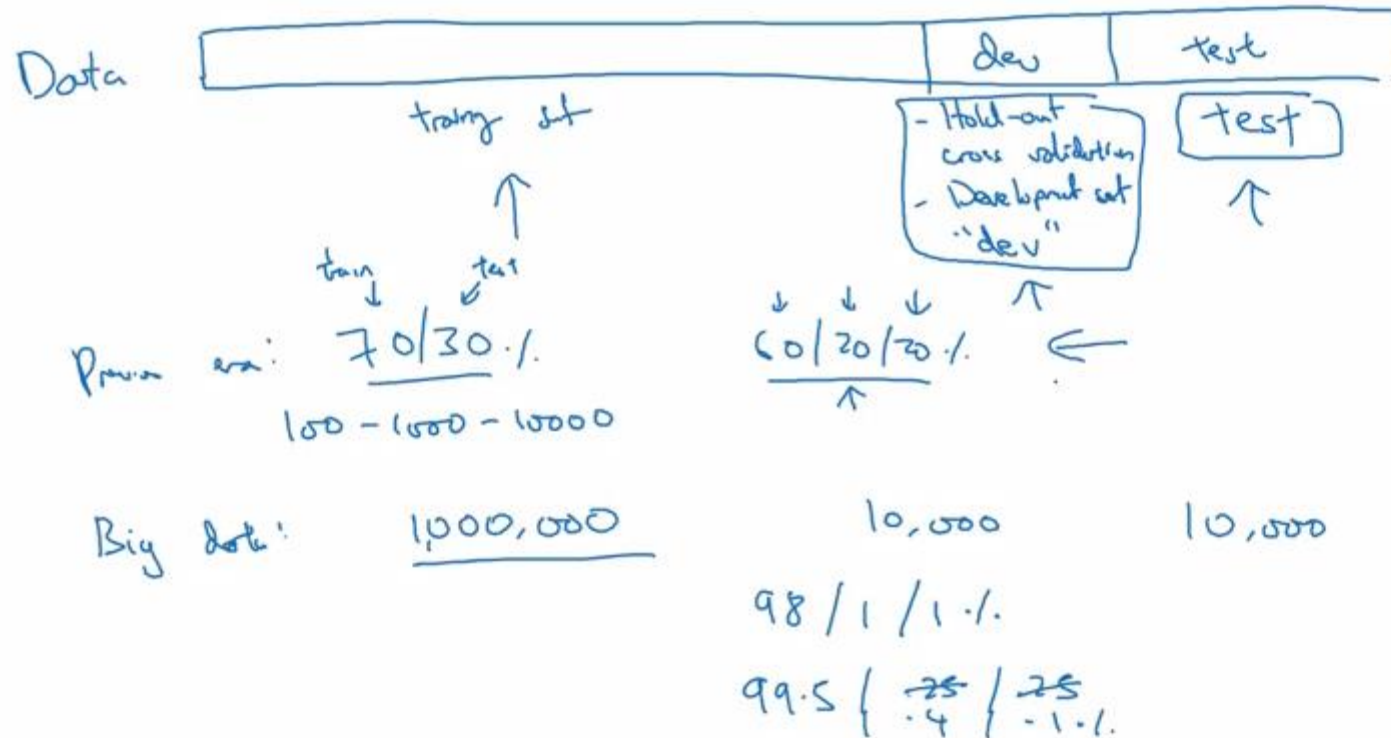 Data
dev
test
training set
- Hold-out
cross validation
- Development set
"dev"
test
train
test
Previous era: 70/30 %
60/20/20 %
100 - 1000 - 10000
Big data: 1,000,000
10,000
10,000
98 / 1 / 1 %
99.5 / 25 / 25
.4 / .1 %